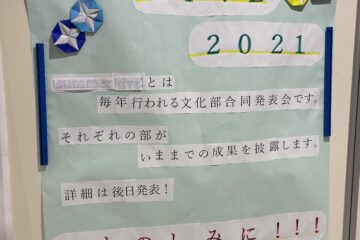 2021
summer liveとは
毎年行われる文化部合同発表会です。
それぞれの部が
いままでの成果を披露します。
詳細は後日発表!
たのしみに!!!